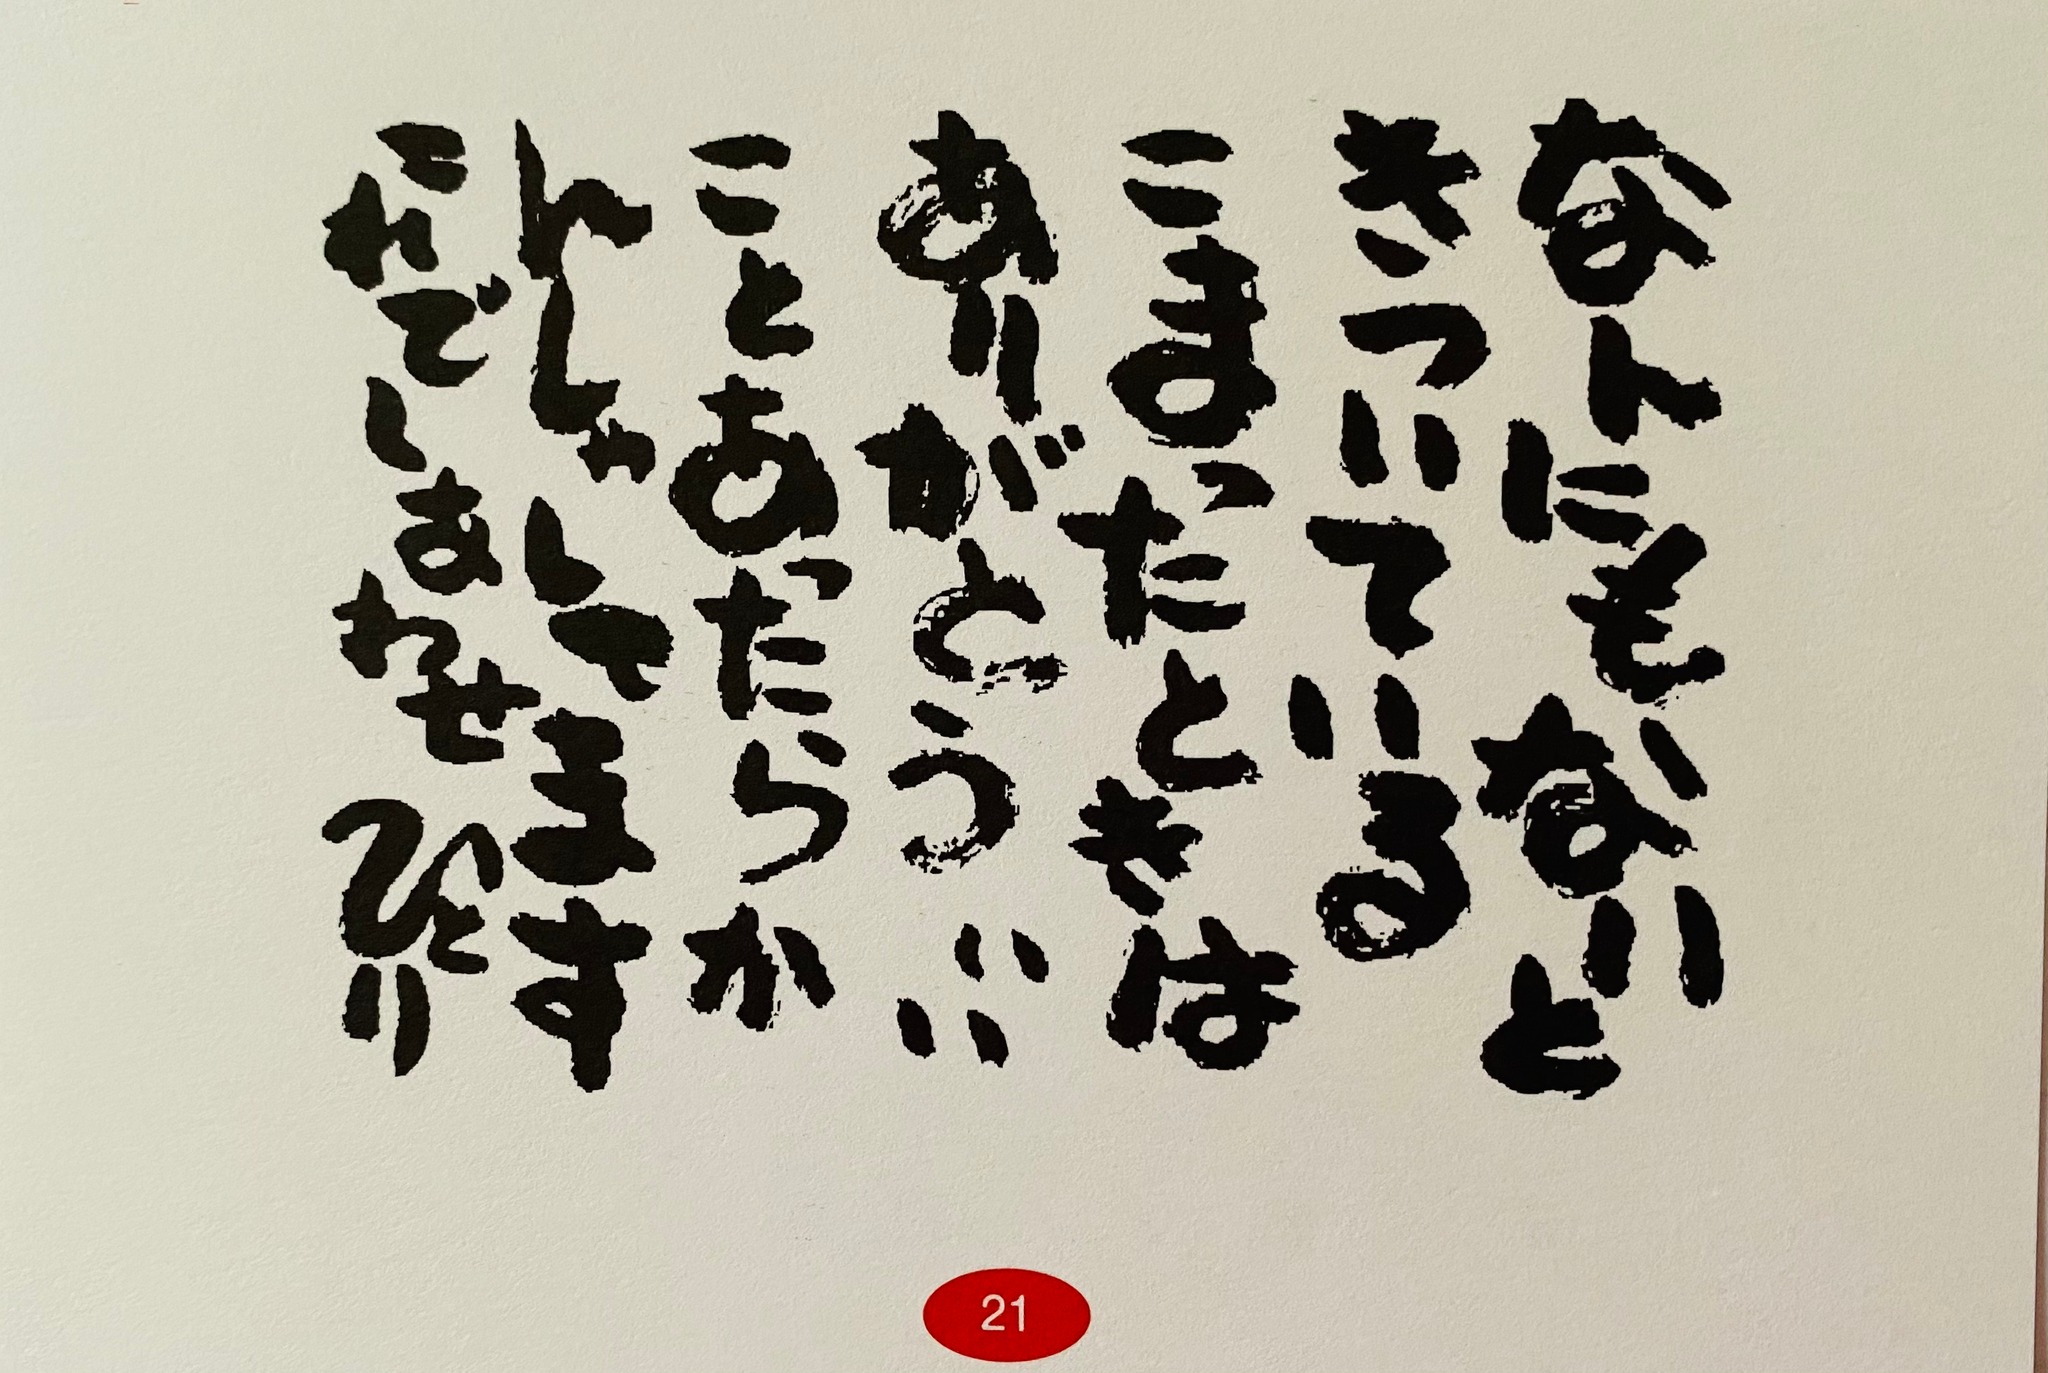 なんにもないと
きついている
こまったときは
ありがとういい
ことあったらか
んしゃしてます
これでしあわせ ひとり
21